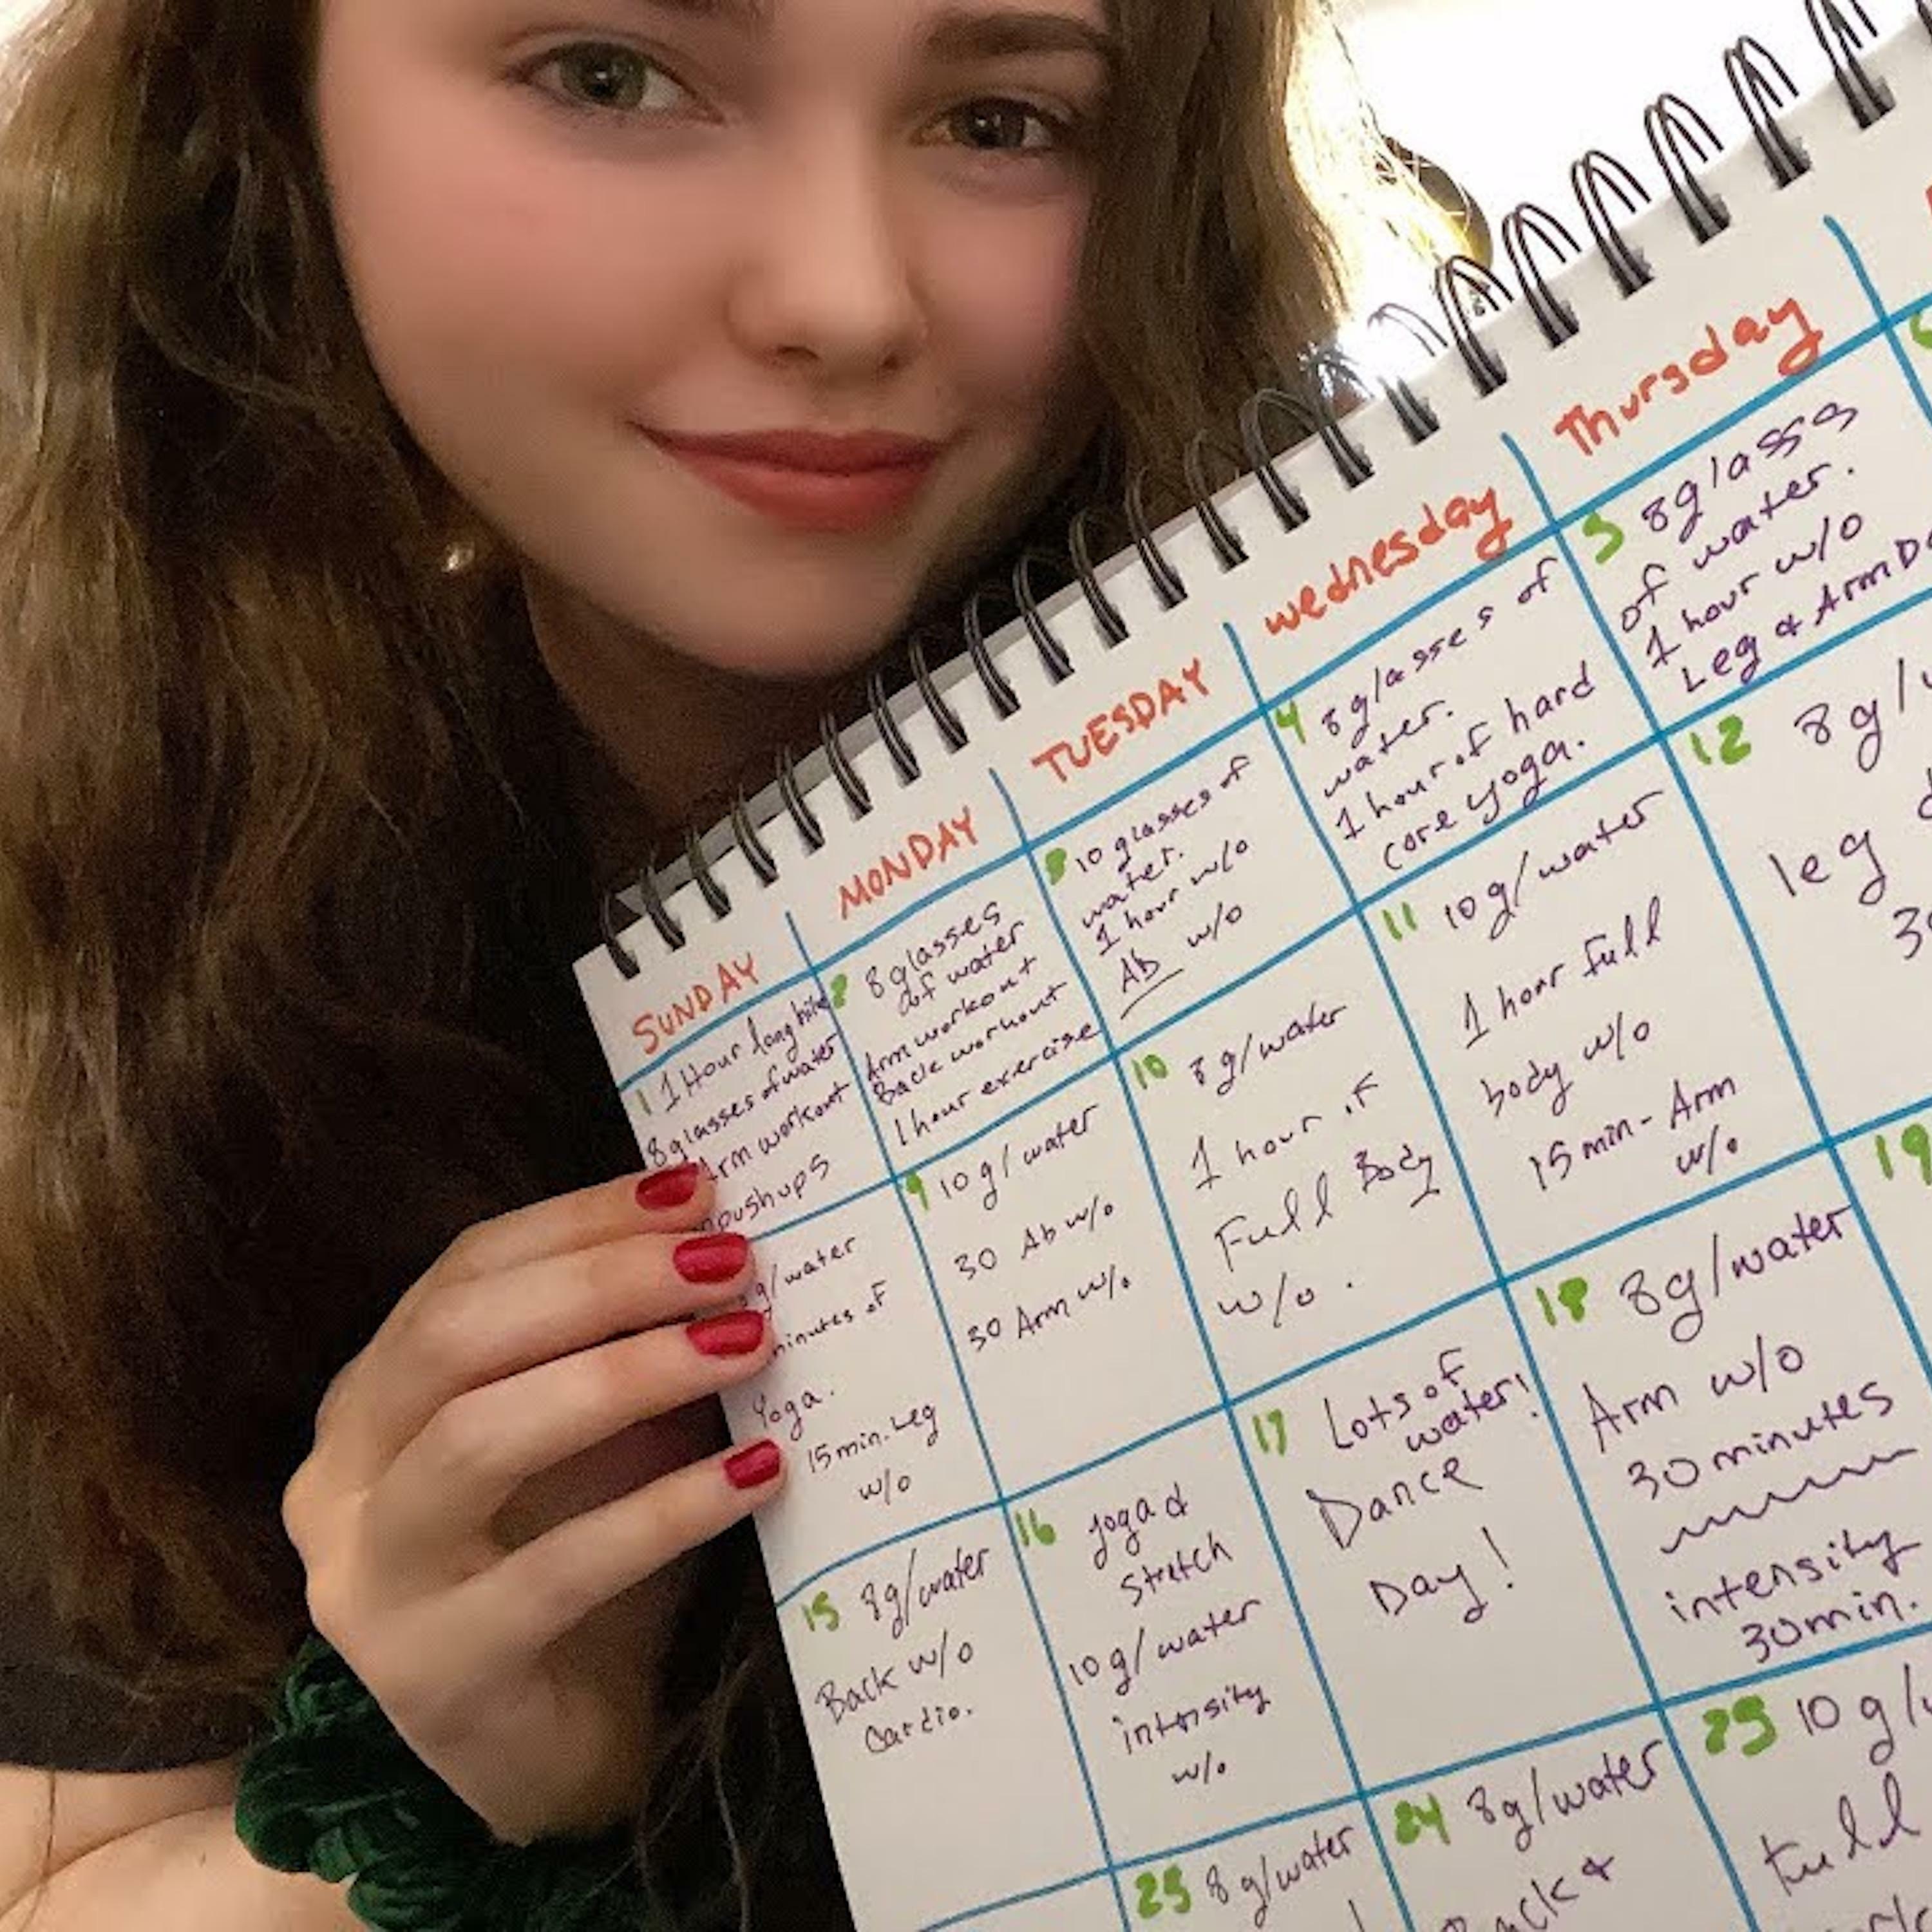 SUNDAY
MONDAY
TUESDAY
wednesday
Thursday
1 1 Hour long hike
8 glasses of water
Arm workout
pushups
2 8 glasses
of water
Arm workout
Back workout
1 hour exercise
3 10 glasses of
water.
1 hour w/o
Ab w/o
4 8 glasses of
water.
1 hour of hard
core yoga.
5 8 glasss
of water.
1 hour w/o
Leg & Arm
g/water
minutes of
Yoga.
15 min. Leg
w/o
9 10 g/water
30 Ab w/o
30 Arm w/o
10 8 g/water
1 hour of
Full Body
w/o.
11 10 g/water
1 hour Full
body w/o
15 min - Arm
w/o
12 8 g/
leg
15 8g/water
Back w/o
Cardio.
16 Yoga &
Stretch
10 g/water
intensity
w/o
17 Lots of
water!
Dance
Day!
18 8g/water
Arm w/o
30 minutes
intensity
30 min.
19
25 8 g/water
24 8g/water
&
25 10 g/
Full